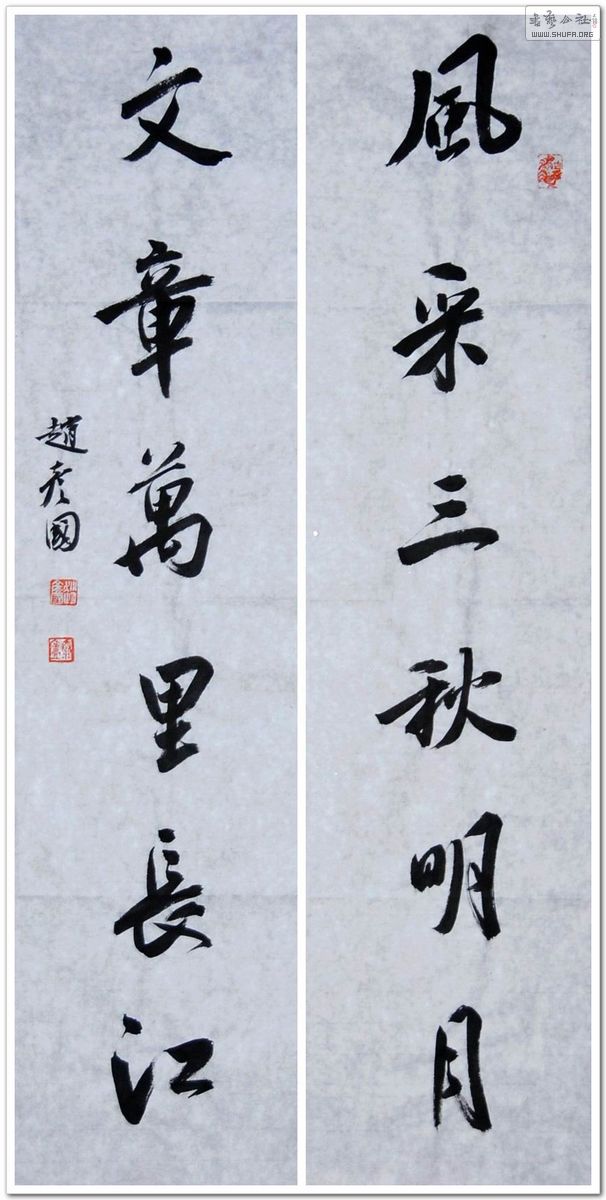 風采三秋明月
文章萬里長江
趙彥國
書藝公社
WWW.SHUFA.ORG